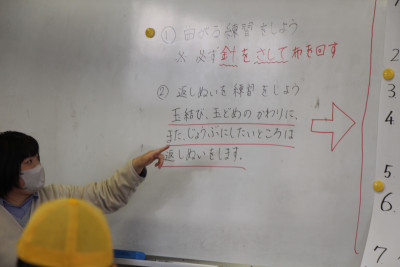 ① 曲がる練習をしよう
※ 必ず針をさして布を回す
② 返しぬいを練習をしよう
玉結び、玉どめのかわりに、
また、じょうぶにしたいところは
返しぬいをします。
1
2
3
4
5
6.
7